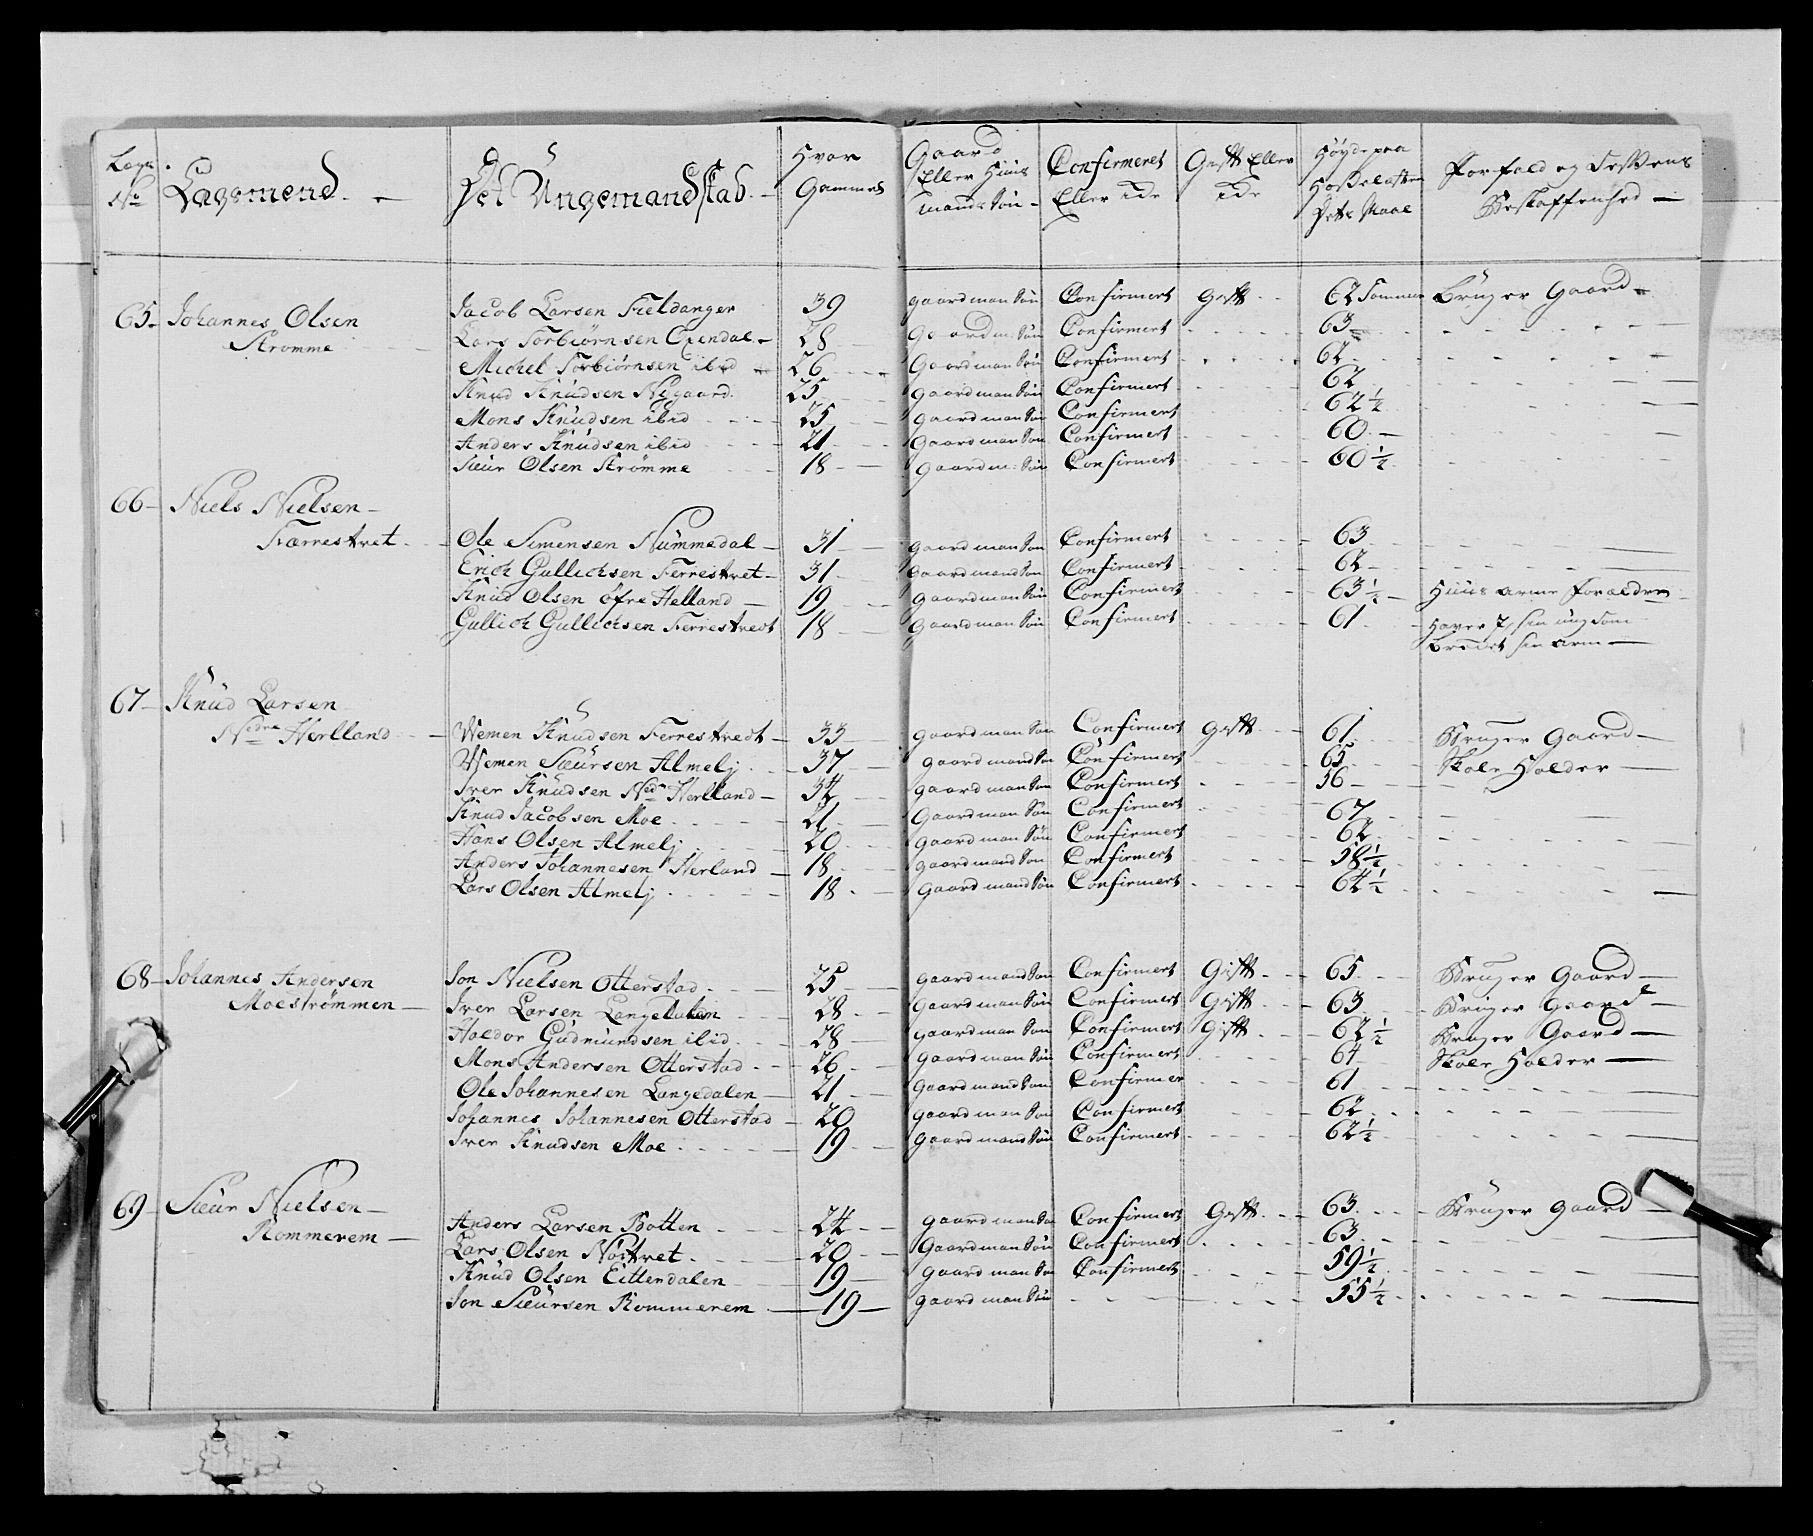 Lægs No Lagemend. Det Ungemandskab. Hvor Gammel Gaard Eller Huus mands Søn Confirmeret Eller Ede Gift Eller Ede Høyde paa
65 Johannes Olsen Strømme
Jacob Larsen Fieldanger 39 gaardman Søn Confirmert Gift 62 Tommer Bruger Gaard
Lars Torbiørnsen 28 Gaardm: Søn Confirmert 63
Michel Torbiørnsen ibid 26 Gaardman Søn Confirmert 62
Knud Knudsen Nygaard 25 gaardman Søn Confirmert 62
Mons Knudsen ibid 25 gaardman Søn Confirmert 62½
Anders Knudsen ibid 21 gaardman Søn Confirmert 60
Siur Olsen Strømme 18 gaardm: Søn Confirmert 60½
66 Niels Nielsen
Færrestvet
Ole Simensen Nummedal 31 gaardman Søn Confirmert 63
Erich Gullichsen Ferrestvet 31 gaardmand Søn Confirmert 62
Knud Olsen öfre Helland 19 gaardman Søn Confirmert 63½
Gullich Gullichsen Ferrestvedt 18 gaardman Søn Confirmert 61
67 Knud Larsen
Nedre Herlland
Wemen Knudsen Ferrestvedt 33 gaardman Søn Confirmert Gift 61 Bruger Gaard
Wemen Siursen Almelj 37 gaardmand Søn Confirmert 65 Skole Holder
Iver Knudsen Nedr Herlland 34 gaardman Søn Confirmert 56
Knud Jacobsen Moe 21 Gaardman Søn Confirmert 67
Hans Olsen Almelj 20 gaardman Søn Confirmert 62
Anders Johannesen Herland 18 gaardmand Søn Confirmert 58½
Lars Olsen Almelj 18 gaardmand Søn Confirmert 64½
68 Johannes Andersen
Moestrømmen
Jon Nielsen Otterstad 25 gaardmand Søn Confirmert Gift 65 Bruger Gaard
Iver Larsen Langedalen 28 Gaardman Søn Confirmert Gift 63 Bruger Gaard
Haldor Gudmundsen ibid 28 gaardman Søn Confirmert Gift 62½ Bruger Gaard
Mons Andersen Otterstad 26 gaardman Søn Confirmert 64 Skole Holder
Ole Johannesen Langedalen 21 Gaardmand Søn Confirmer 61
Johannes Johannesen Otterstad 20 gaardman Søn Confirmert 62
Iver Knudsen Moe 19 gaardmand Søn Confirmert 62½
69 Siur Nielsen
Rommerem
Anders Larsen Botten 24 gaardman Søn Confirmert Gift 63 Bruger Gaard
Lars Olsen 20 Gaardman Søn Confirmert 63
Knud Olsen Eittendalen 19 gaardman Søn Confirmert 59½
Jon Siursen Rommerem 19 gaardman Søn 55½